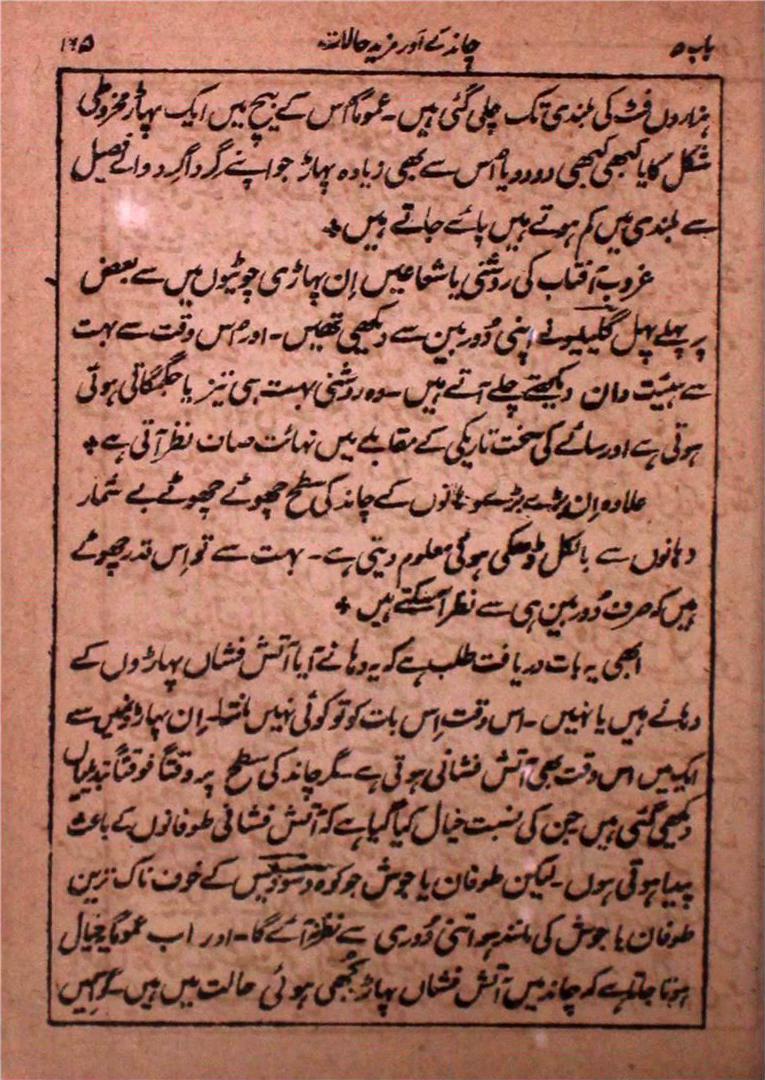 باب ۵ چاند کے اور مزید حالات ۱۶۵
ہزاروں فٹ کی بلندی تک چلی گئی ہیں۔ عموماً اس کے بیچ میں ایک پہاڑ مخروطی
شکل کا یا کبھی کبھی دو دو یا اُس سے بھی زیادہ پہاڑ جو اپنے گِرداگِرد والے فصیل
سے بلندی میں کم ہوتے ہیں پائے جاتے ہیں +
غروب آفتاب کی روشنی یا شعاعیں اِن پہاڑی چوٹیوں میں سے بعض
پر پہلے پہل گلیلیو نے اپنی دُوربین سے دیکھی تھیں۔ اور اُس وقت سے بہت
سے ہیئت دان دیکھتے چلے آتے ہیں۔ وہ روشنی بہت ہی تیز یا جگمگاتی ہوئی
ہوتی ہے اور سائے کی سخت تاریکی کے مقابلے میں نہائت صاف نظر آتی ہے +
علاوہ اِن بڑے بڑے دہانوں کے چاند کی سطح چھوٹے چھوٹے بے شمار
دہانوں سے بالکل ڈھکی ہوئی معلوم دیتی ہے۔ بہت سے تو اِس قدر چھوٹے
ہیں کہ صرف دُوربین ہی سے نظر آسکتے ہیں +
ابھی یہ بات دریافت طلب ہے کہ یہ دہانے آیا آتش فشاں پہاڑوں کے
دہانے ہیں یا نہیں۔ اس وقت اِس بات کو تو کوئی نہیں مانتا۔ اِن پہاڑوں میں سے
ایک میں اس وقت بھی آتش فشانی ہوتی ہے۔ مگر چاند کی سطح پر وقتاً فوقتاً تبدیلیاں
دیکھی گئی ہیں جن کی نسبت خیال کیا گیا ہے کہ آتش فشانی طوفانوں کے باعث
پیدا ہوتی ہوں۔ لیکن طوفان یا جوش جو کوہ وسوویس کے خوف ناک ترین
طوفان یا جوش کی مانند ہو اتنی دُوری سے نظر آئے گا۔ اور اب عموماً یہ خیال
ہوتا جاتا ہے کہ چاند میں آتش فشاں پہاڑ بُجھی ہوئی حالت میں ہیں۔